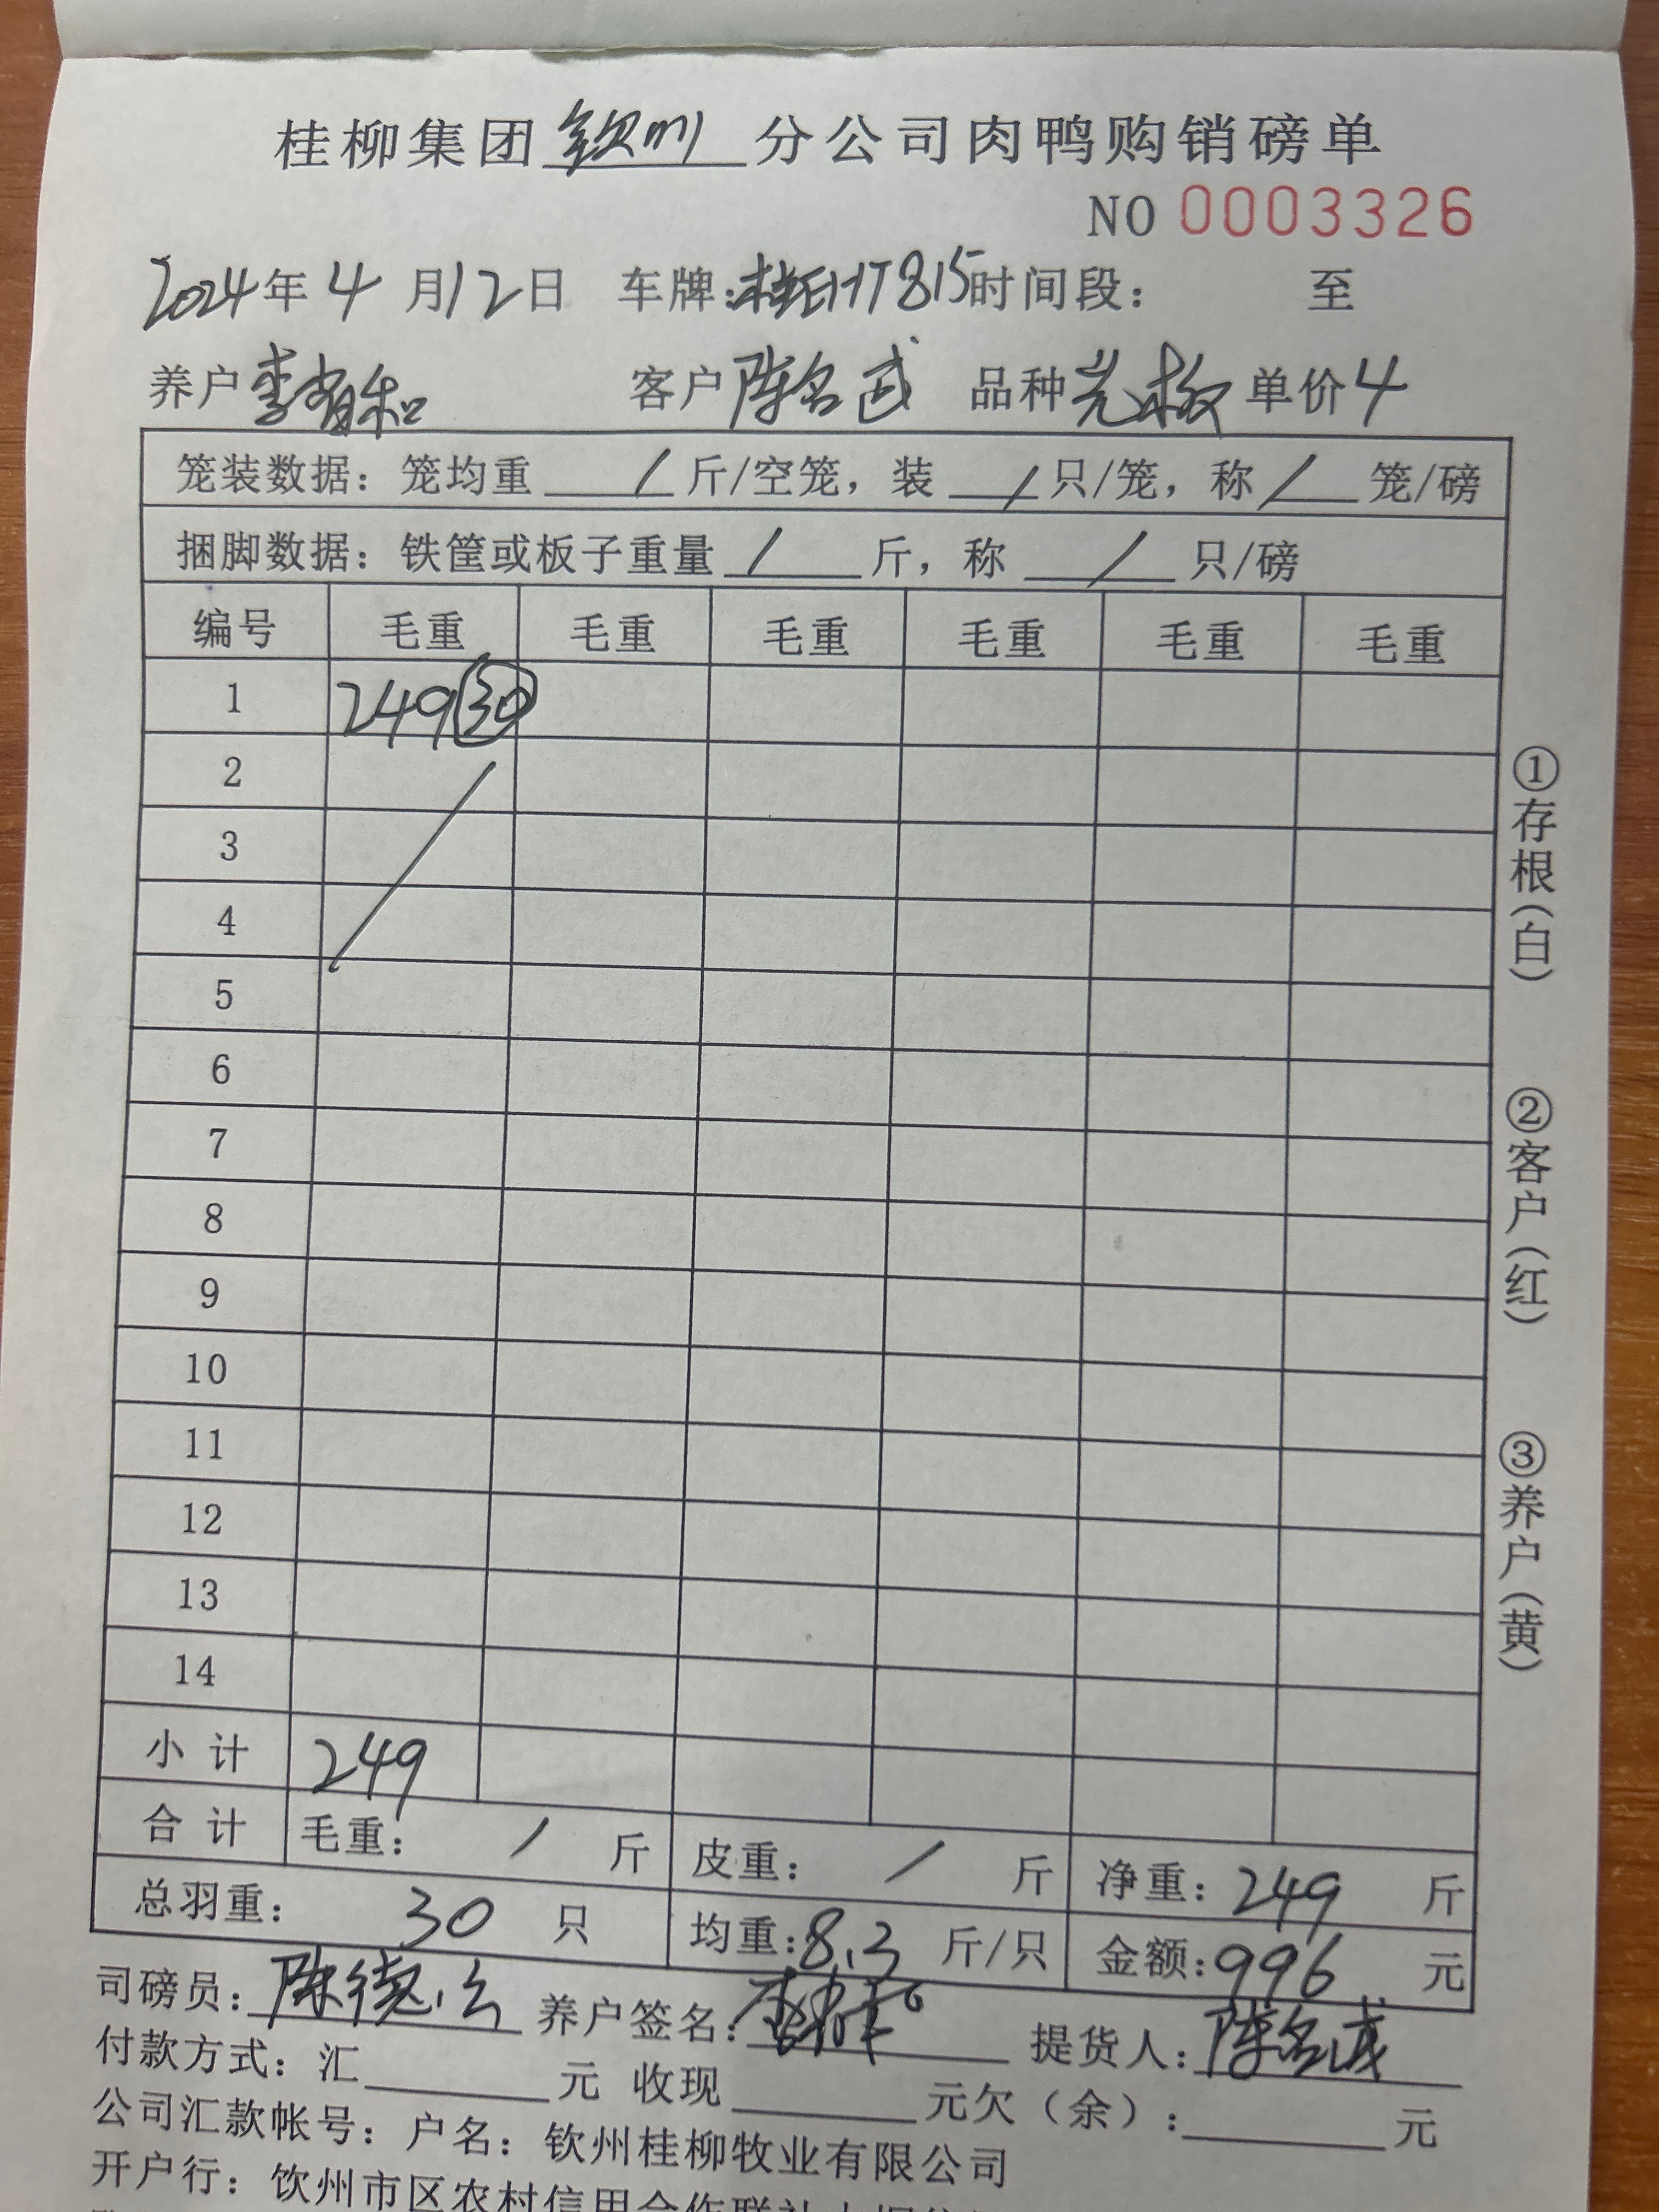 桂柳集团钦州分公司肉鸭购销磅单
NO 0003326
2024年4月12日 车牌:桂EHT815时间段： 至
养户李有和 客户陈名成 品种 单价4
笼装数据：笼均重 / 斤/空笼，装 / 只/笼，称 / 笼/磅
捆脚数据：铁筐或板子重量 / 斤，称 / 只/磅
编号 毛重 毛重 毛重 毛重 毛重 毛重
1 249 30
2
3
4
5
6
7
8
9
10
11
12
13
14
小计 249
合计 毛重： / 斤 皮重： / 斤 净重：249 斤
总羽重： 30 只 均重：8.3 斤/只 金额：996 元
司磅员：陈德 养户签名： 提货人：陈名成
付款方式：汇 元 收现 元欠（余）： 元
公司汇款帐号：户名：钦州桂柳牧业有限公司
开户行：钦州市区农村信用合作联社
①存根（白）
②客户（红）
③养户（黄）